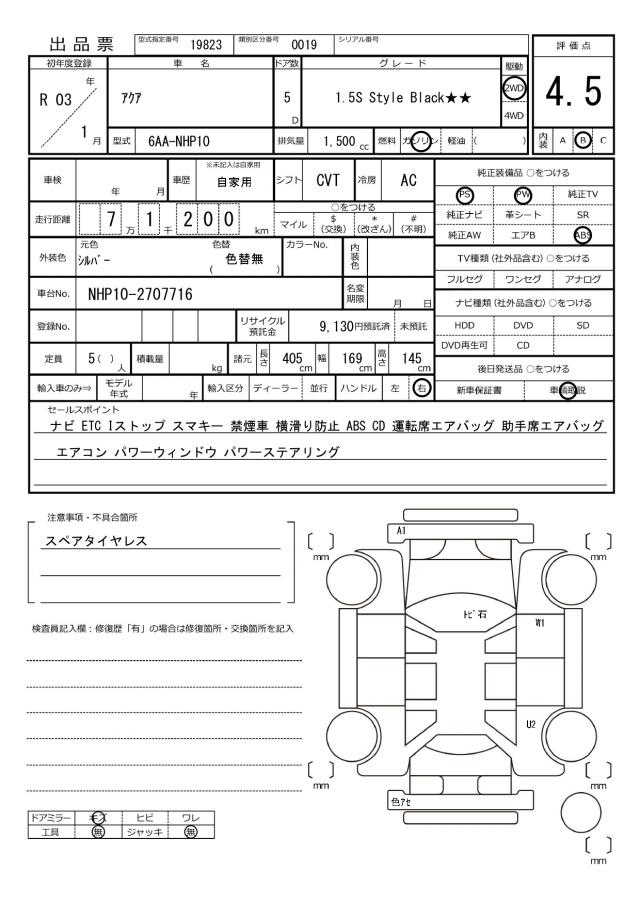 出品票 型式指定番号 19823 類別区分番号 0019 シリアル番号
初年度登録 車名 ドア数 グレード 駆動 評価点
R 03 年 1月 アクア 5 D 1.5S Style Black★★ 2WD 4WD 4.5
型式 6AA-NHP10 排気量 1,500 cc 燃料 ガソリン 軽油 ( ) 内装 A B C
車検 年 月 車歴 ※未記入は自家用 自家用 シフト CVT 冷房 AC
純正装備品 ○をつける
PS PW 純正TV
走行距離 7 1 万 千 2 0 0 km ○をつける
マイル $(交換) *(改ざん) #(不明)
純正ナビ 革シート SR
純正AW エアB ABS
外装色 元色 シルバー 色替 色替無 ( ) カラーNo. 内装色
TV種類(社外品含む)○をつける
フルセグ ワンセグ アナログ
車台No. NHP10-2707716 名変期限 月 日
ナビ種類(社外品含む)○をつける
登録No. リサイクル預託金 9,130円預託済 未預託
HDD DVD SD
DVD再生可 CD
定員 5( )人 積載量 kg 諸元 長さ 405 cm 幅 169 cm 高さ 145 cm
後日発送品 ○をつける
輸入車のみ⇒ モデル年式 年 輸入区分 ディーラー 並行 ハンドル 左 右
新車保証書 車輌取説
セールスポイント
ナビ ETC Iストップ スマキー 禁煙車 横滑り防止 ABS CD 運転席エアバッグ 助手席エアバッグ
エアコン パワーウィンドウ パワーステアリング
注意事項・不具合箇所
スペアタイヤレス
検査員記入欄:修復歴「有」の場合は修復箇所・交換箇所を記入
A1
mm
mm
トビ石
W1
U2
mm
mm
色アセ
mm
ドアミラー キズ ヒビ ワレ
工具 無 ジャッキ 無